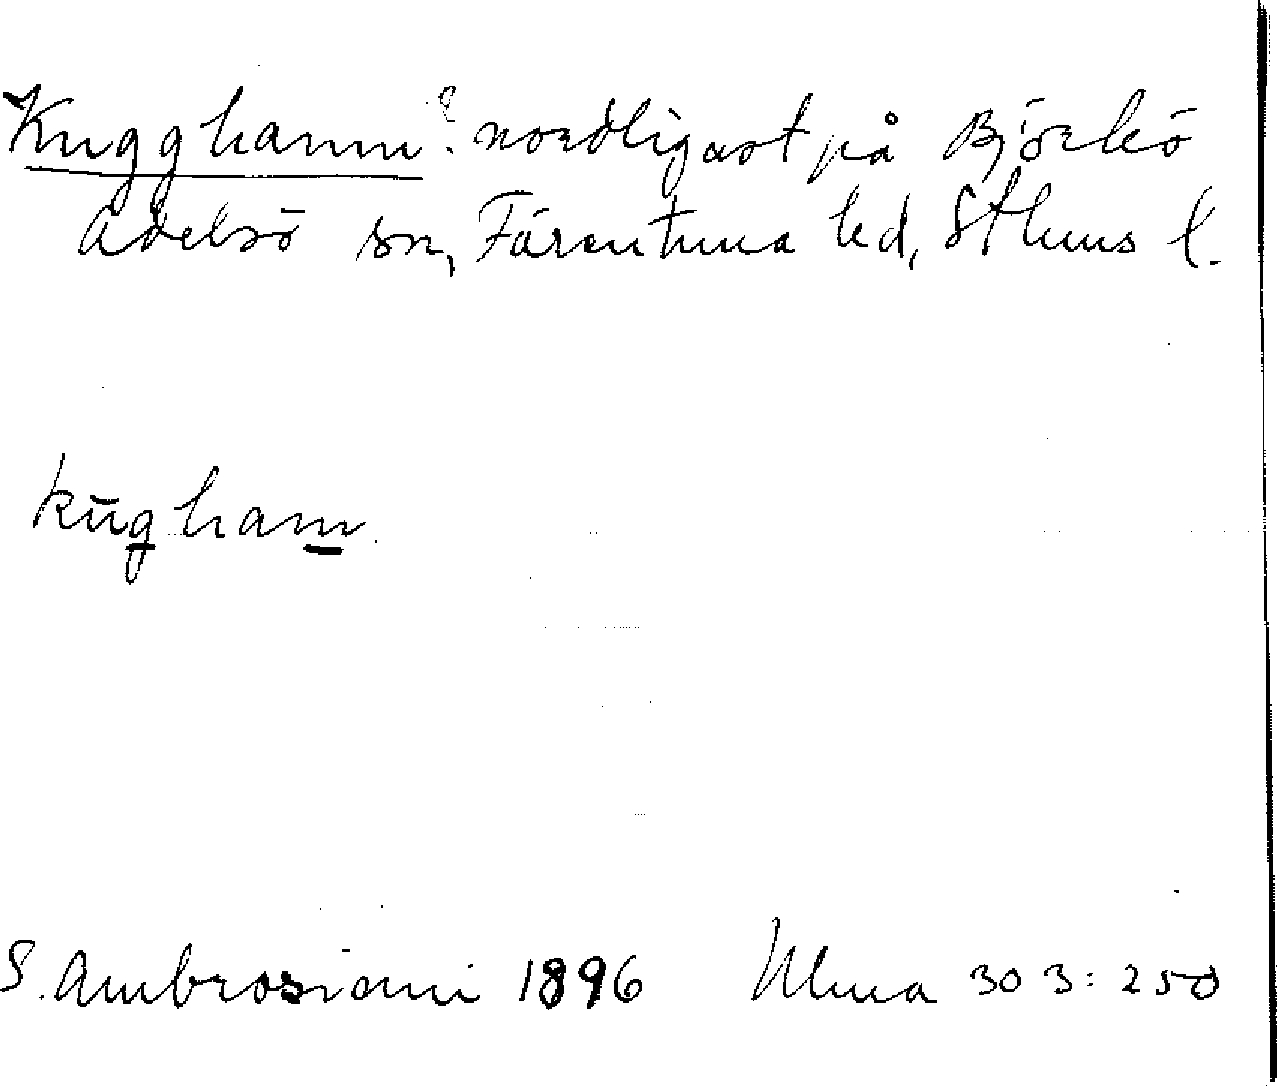 Kugghamn? nordligast på Björkö
Adelsö sn, Färentuna hd, Sthms l.
kūgham
S. Ambrosiani 1896 Ulma 303:250